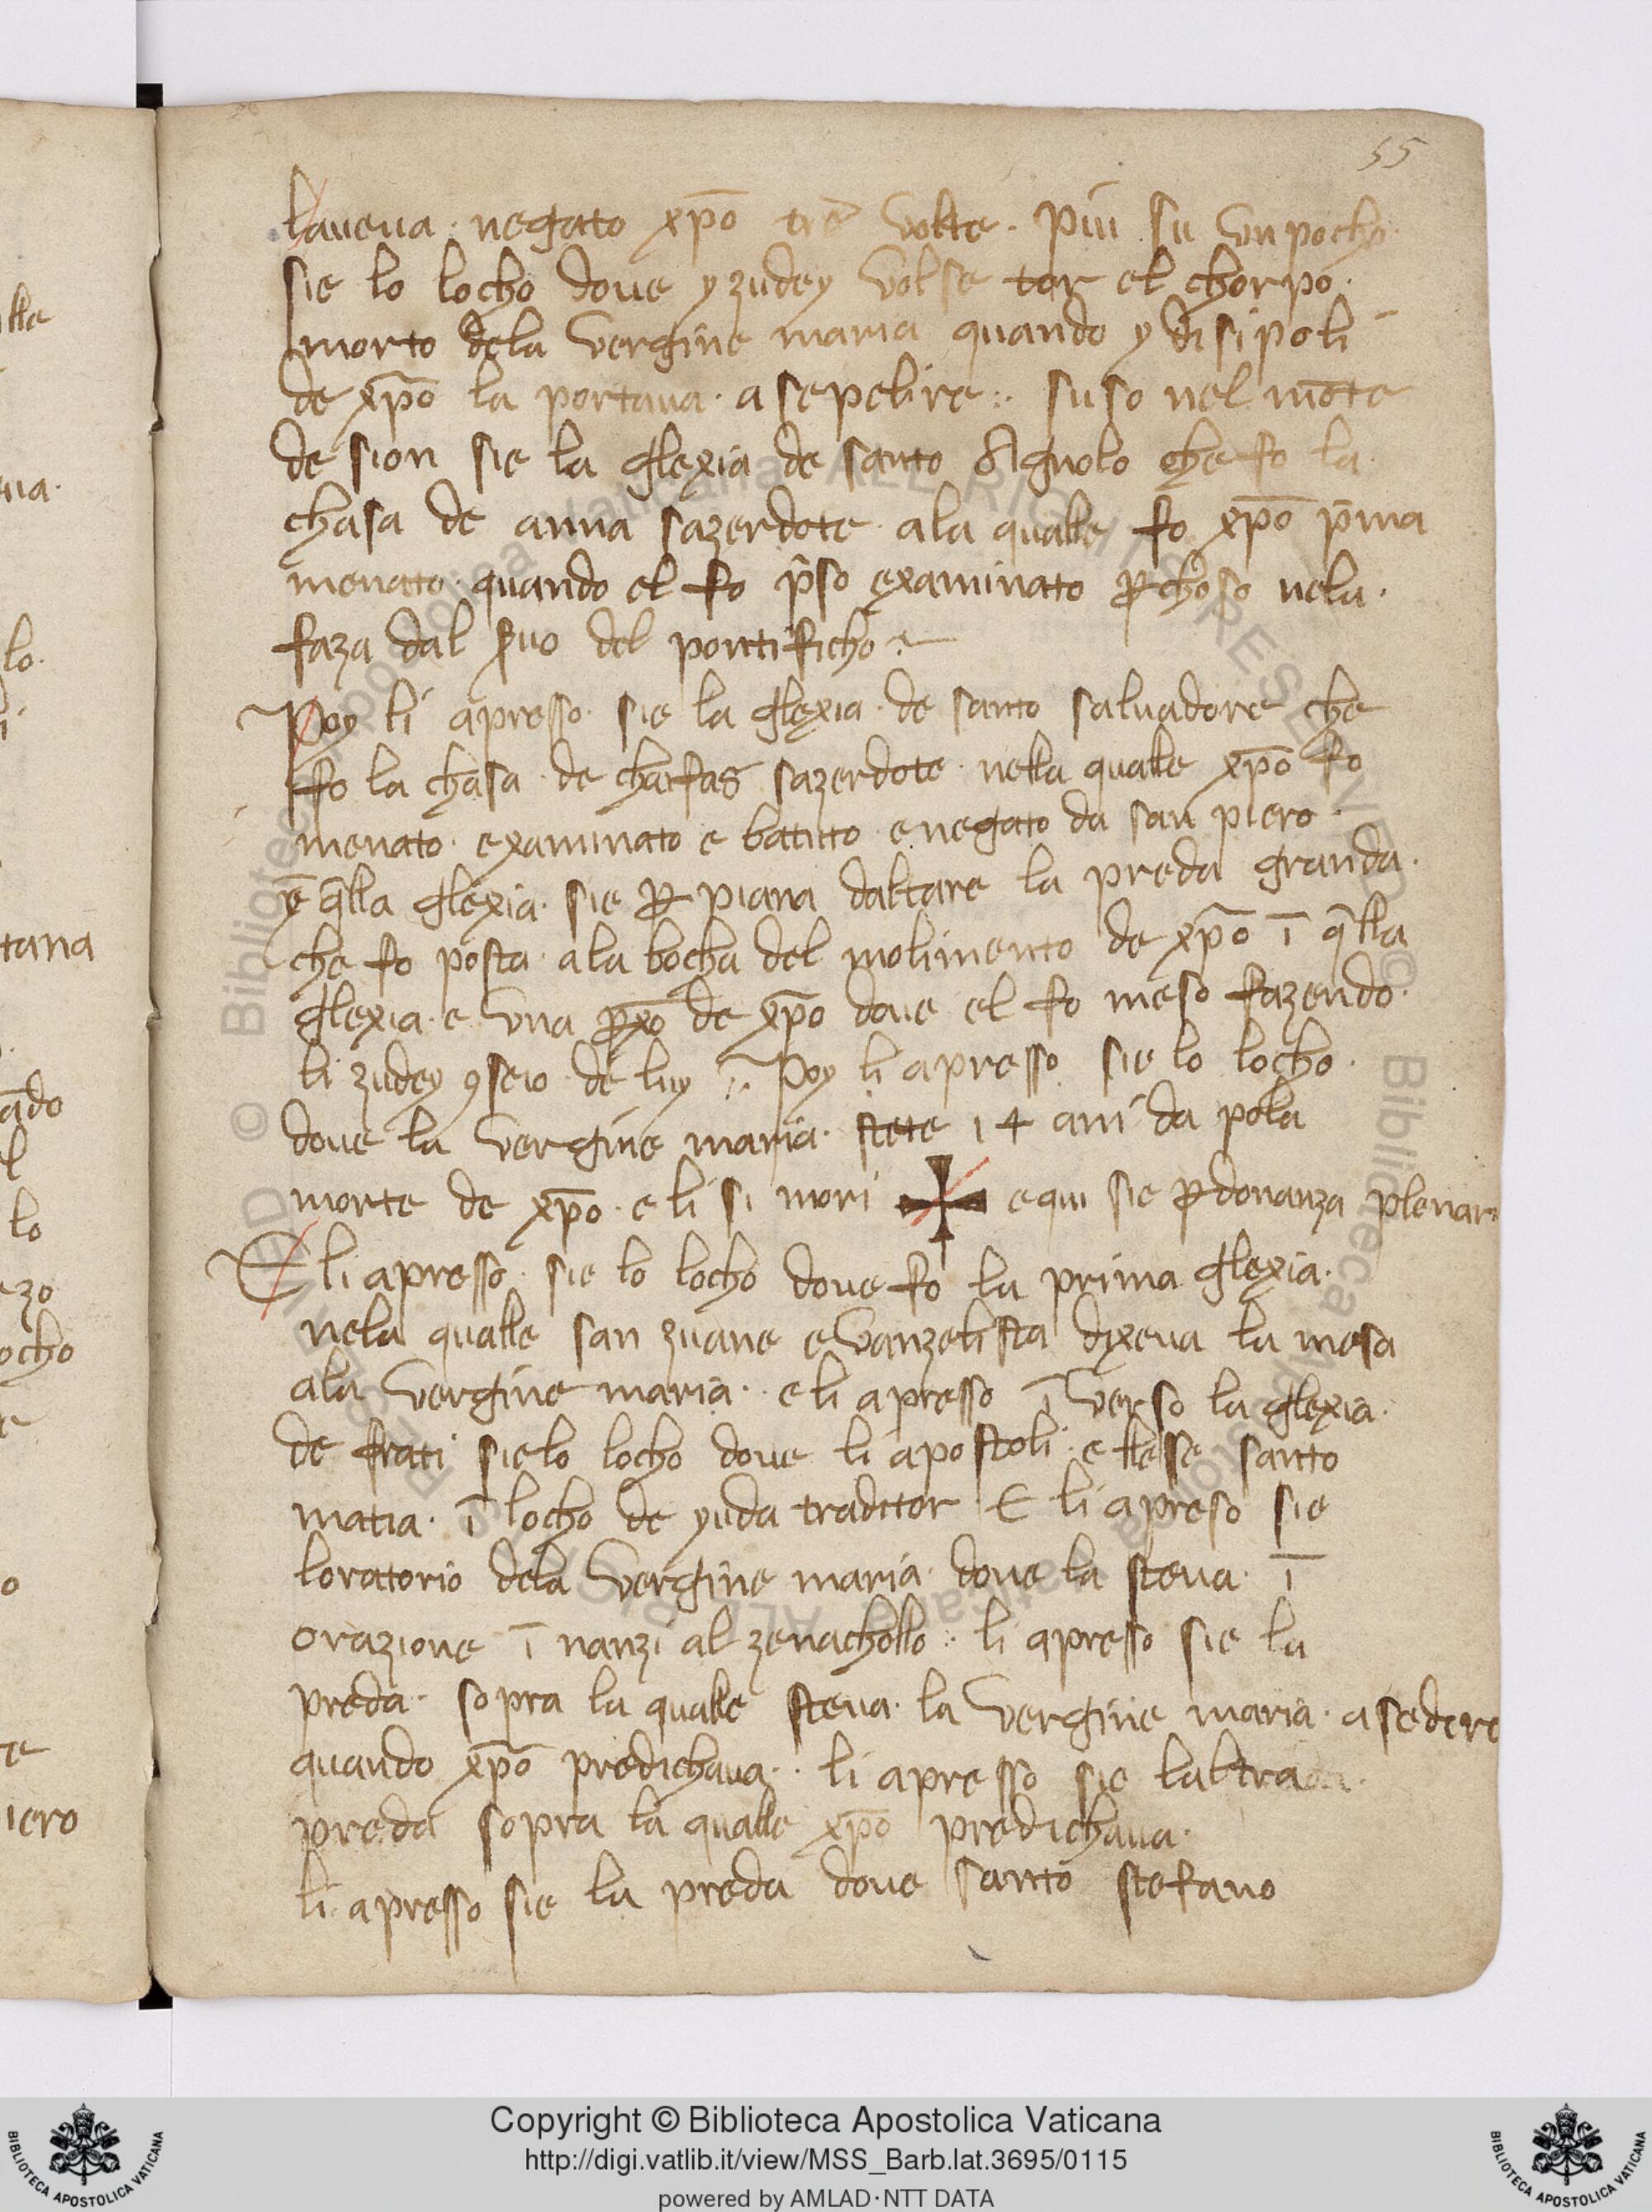 55
laueua · negato xp̄o tre volte · Piu su vnpocho
sie lo locho doue y zudey volse tor el chorpo ·
morto dela vergine maria quando y disipoli
de xp̄o la portaua · a sepelire :· suso nel mōte
de sion sie la glexia de santo Agnolo che fo la
chasa de anna sazerdote · ala qualle fo xp̄o p̄ma
menato · quando el fo p̄so examinato ꝑchoso nela ·
faza dal ſuo del pontificho :~
Poy li apresso · sie la glexia · de santo saluadore che
fo la chasa · de chaifas sazerdote · nella qualle xp̄o fo
menato · examinato e batuto e negato da san piero ·
ē q̄lla glexia · sie ꝑ piana daltare la preda granda ·
che fo posta · ala bocha del molimento de xp̄o ī q̄lla
glexia · e vna de xp̄o doue el fo meso fazendo ·
li zudey ꝯseio de luy :· Poy li apresso sie lo locho ·
doue la vergine maria · stete 14 ani da pola
morte de xp̄o · e li si mori ✠ e qui sie ꝑdonanza plenar
E li apresso · sie lo locho doue fo la prima glexia ·
nela qualle san zuane evanzelista dixeua la mesa
ala vergine maria · e li apresso ī verso la glexia ·
de frati sie lo locho doue li apostoli · ellese santo
matia · ī locho de yuda traditor · E li apreso sie
loratorio dela vergine maria · doue la steua · ī
orazione ī nanzi al zenachollo :· li apresso sie la
preda · sopra la qualle steua · la vergine maria · a sedere
quando xp̄o predichaua · · li apresso sie laltra
preda sopra la qualle xp̄o predichaua ·
li apresso sie la preda doue santo stefano
lle
ua ·
lo ·
tana
ādo
l
lo
zo
ocho
o
te
iero
Copyright © Biblioteca Apostolica Vaticana
http://digi.vatlib.it/view/MSS_Barb.lat.3695/0115
powered by AMLAD·NTT DATA
BIBLIOTECA APOSTOLICA VATICANA
BIBLIOTECA APOSTOLICA VATICANA